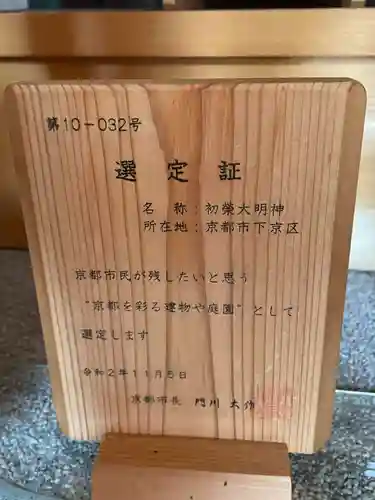 第10-032号
選定証
名 称:初榮大明神
所在地:京都市下京区
京都市民が残したいと思う
“京都を彩る建物や庭園”として
選定します
令和2年11月5日
京都市長 門川 大作